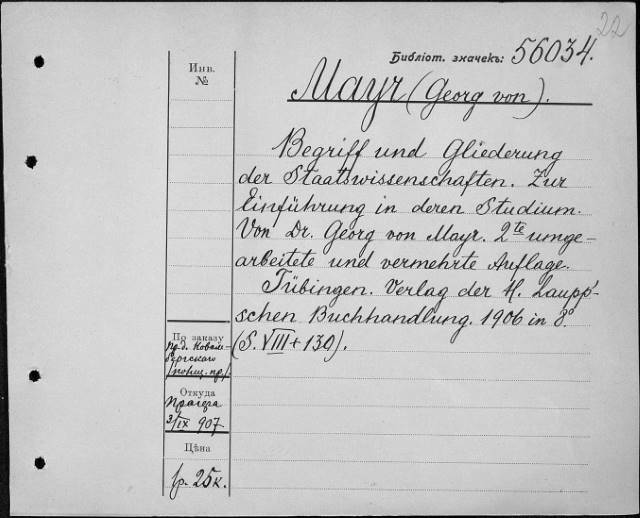 22
Библіот. значекъ: 56034.
Инв.
№
Mayr (Georg von).
Begriff und Gliederung
der Staatswissenschaften. Zur
Einführung in deren Studium.
Von Dr. Georg von Mayr. 2te umge-
arbeitete und vermehrte Auflage.
Tübingen. Verlag der H. Laupp'-
schen Buchhandlung. 1906 in 8°.
(S. VIII + 130).
По заказу
пр.д. Ковале-
Откуда
Прагера
3/IX 907.
Цѣна
1р. 25к.